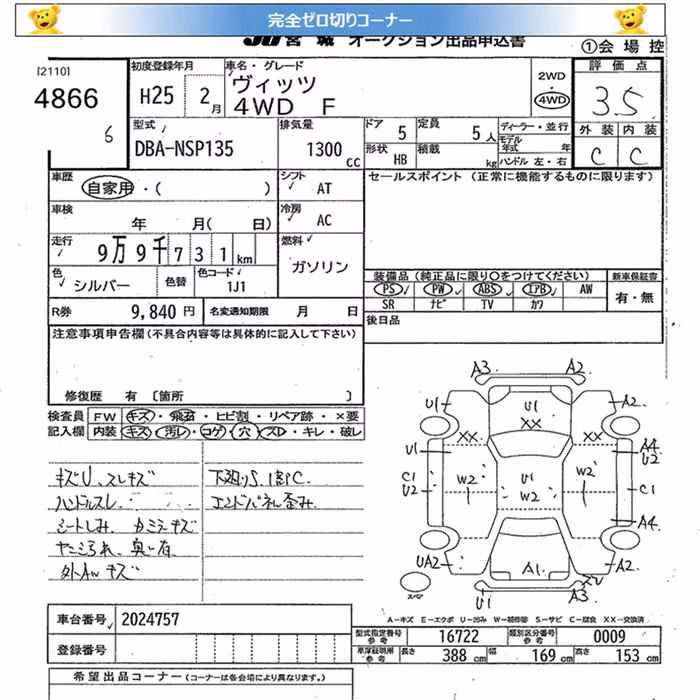 完全ゼロ切りコーナー
JU宮城 オークション出品申込書
①会場控
[2110]
4866
6
初度登録年月
H25 2月
車名・グレード
ヴィッツ
4WD F
2WD
・
4WD
評価点
3.5
外装 内装
C C
型式
DBA-NSP135
排気量
1300 CC
ドア 5
定員 5人
ディーラー・並行
モデル年式 年
形状 HB
積載 kg
ハンドル 左・右
車歴
自家用・( )
シフト AT
セールスポイント (正常に機能するものに限ります)
車検
年 月( 日)
冷房 AC
走行
9万9千731km
燃料
ガソリン
色 シルバー
色替
色コード 1J1
装備品 (純正品に限り○をつけてください)
新車保証書
PS PW ABS エアB AW
有・無
SR ナビ TV カワ
R券 9,840 円
名変通知期限 月 日
後日品
注意事項申告欄 (不具合内容等は具体的に記入して下さい)
修復歴 有 [箇所 ]
検査員 FW キズ・飛石・ヒビ割・リペア跡・×要
記入欄 内装 キズ・汚レ・コゲ・穴・スレ・キレ・破レ
キズU、スレキズ
下廻りS.1部C
ハンドルスレ
エンドパネル歪み
シートしみ、
キズ
ヤニ汚れ、臭い有
外AWキズ
A3 A2
U1 U1 A2
XX XX XX
U1 A4
U2
C1 W2 U1 W2 C1
U2 W2
A4
UA2 A1 A2
XU
スペア U1 A3
A-キズ E-エクボ U-凹み W-補修跡 S-サビ C-腐食 XX-交換済
車台番号 2024757
登録番号
型式指定番号参考 16722
類別区分番号参考 0009
車庫証明用参考
長さ 388 cm
幅 169 cm
高さ 153 cm
希望出品コーナー (コーナーは各会場により異なります。)